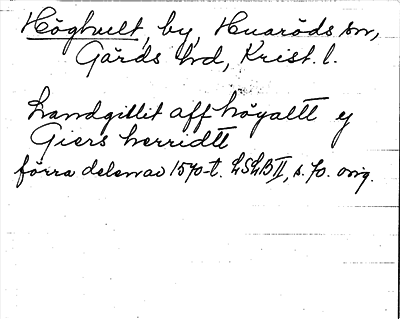 Höghult, by, Huaröds sn,
Gärds hd, Krist. l.
Landgillit aff höyaltt y
Giers herridtt
förra delen av 1570-t. LSLB II, s. 70. orig.